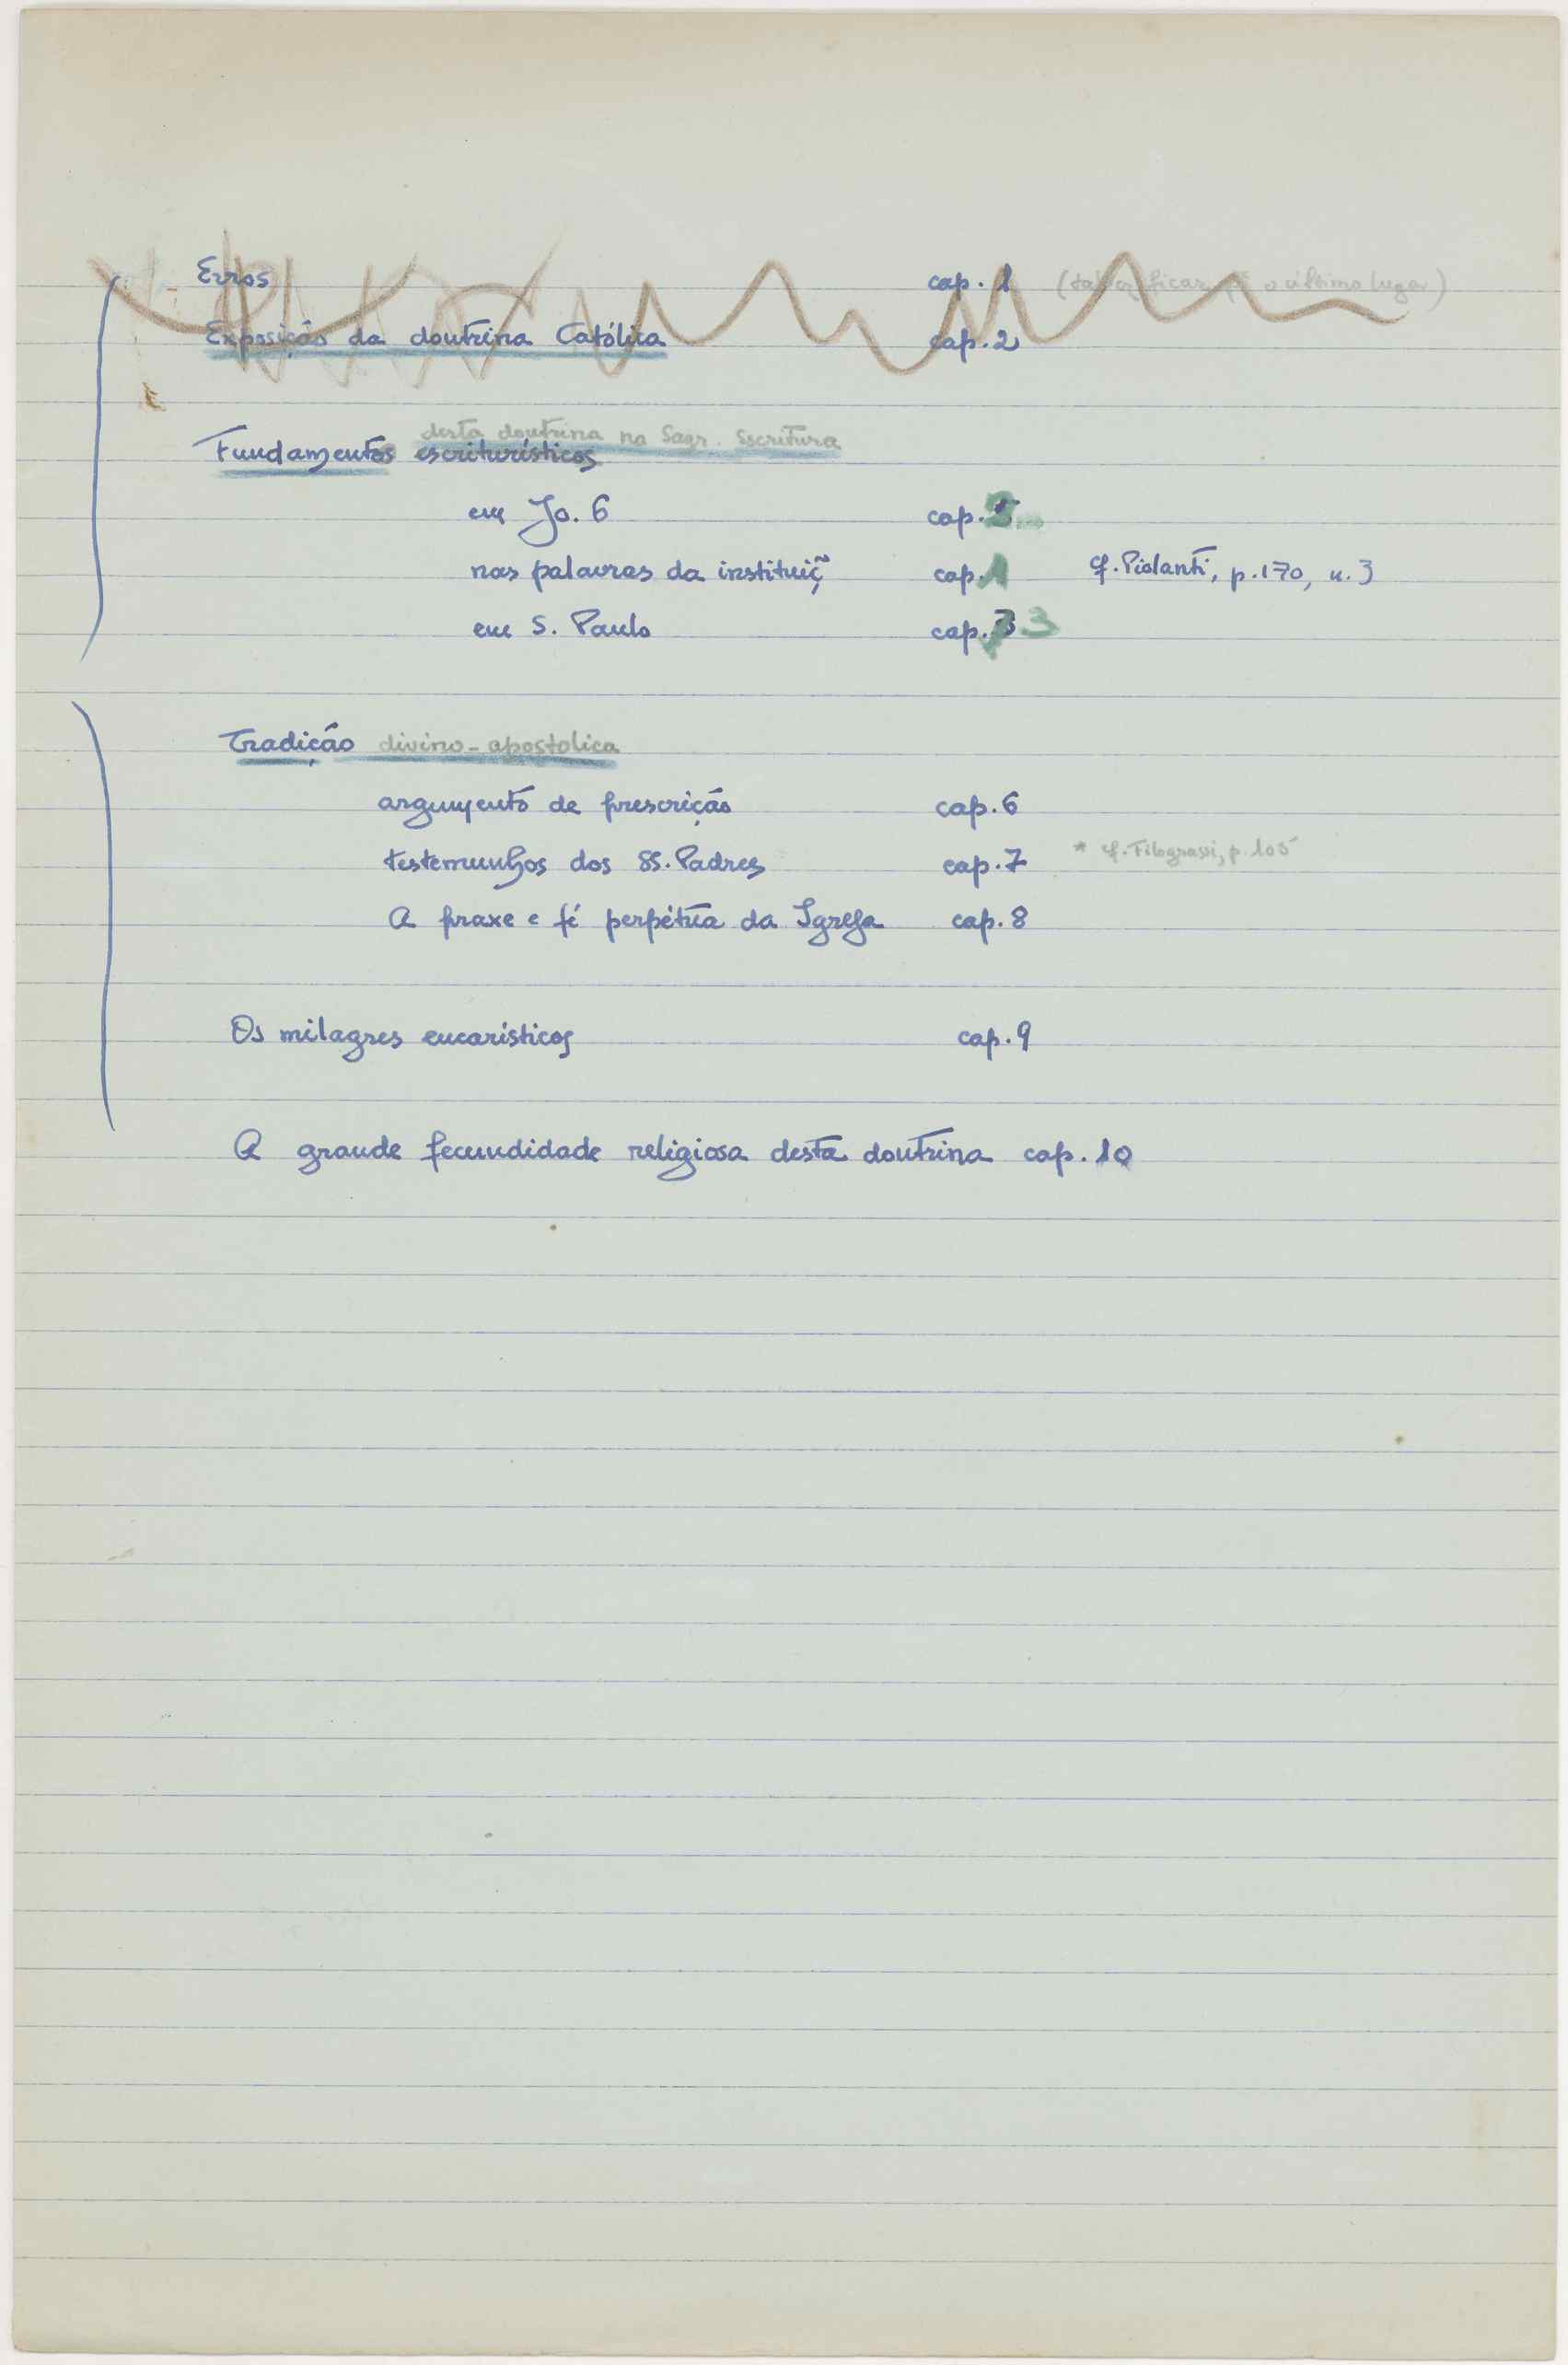 Erros cap. 1 (talvez ficar pª o último lugar)
Exposição da doutrina Católica cap. 2
desta doutrina na Sagr. Escritura
Fundamentos escriturísticos
em Jo. 6 cap. 2
nas palavras da instituiç̃ cap. 1 cf. Piolanti, p. 170, n. 3
em S. Paulo cap. 3
Tradição divino-apostolica
argumento de prescrição cap. 6
testemunhos dos SS. Padres cap. 7 * cf. Filograssi, p. 105
A praxe e fé perpétua da Igreja cap. 8
Os milagres eucarísticos cap. 9
A grande fecundidade religiosa desta doutrina cap. 10